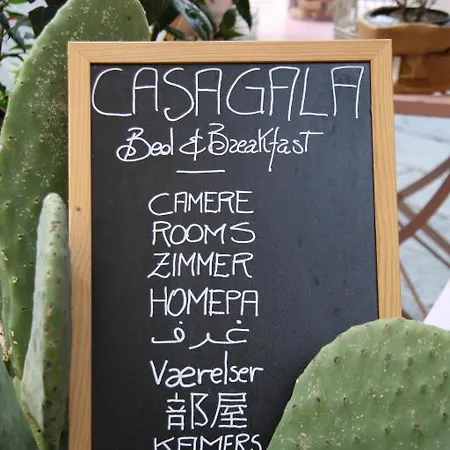 CASAGALA
Bed & Breakfast
CAMERE
ROOMS
ZIMMER
НОМЕРА
غرف
Værelser
部屋
KEIMERS